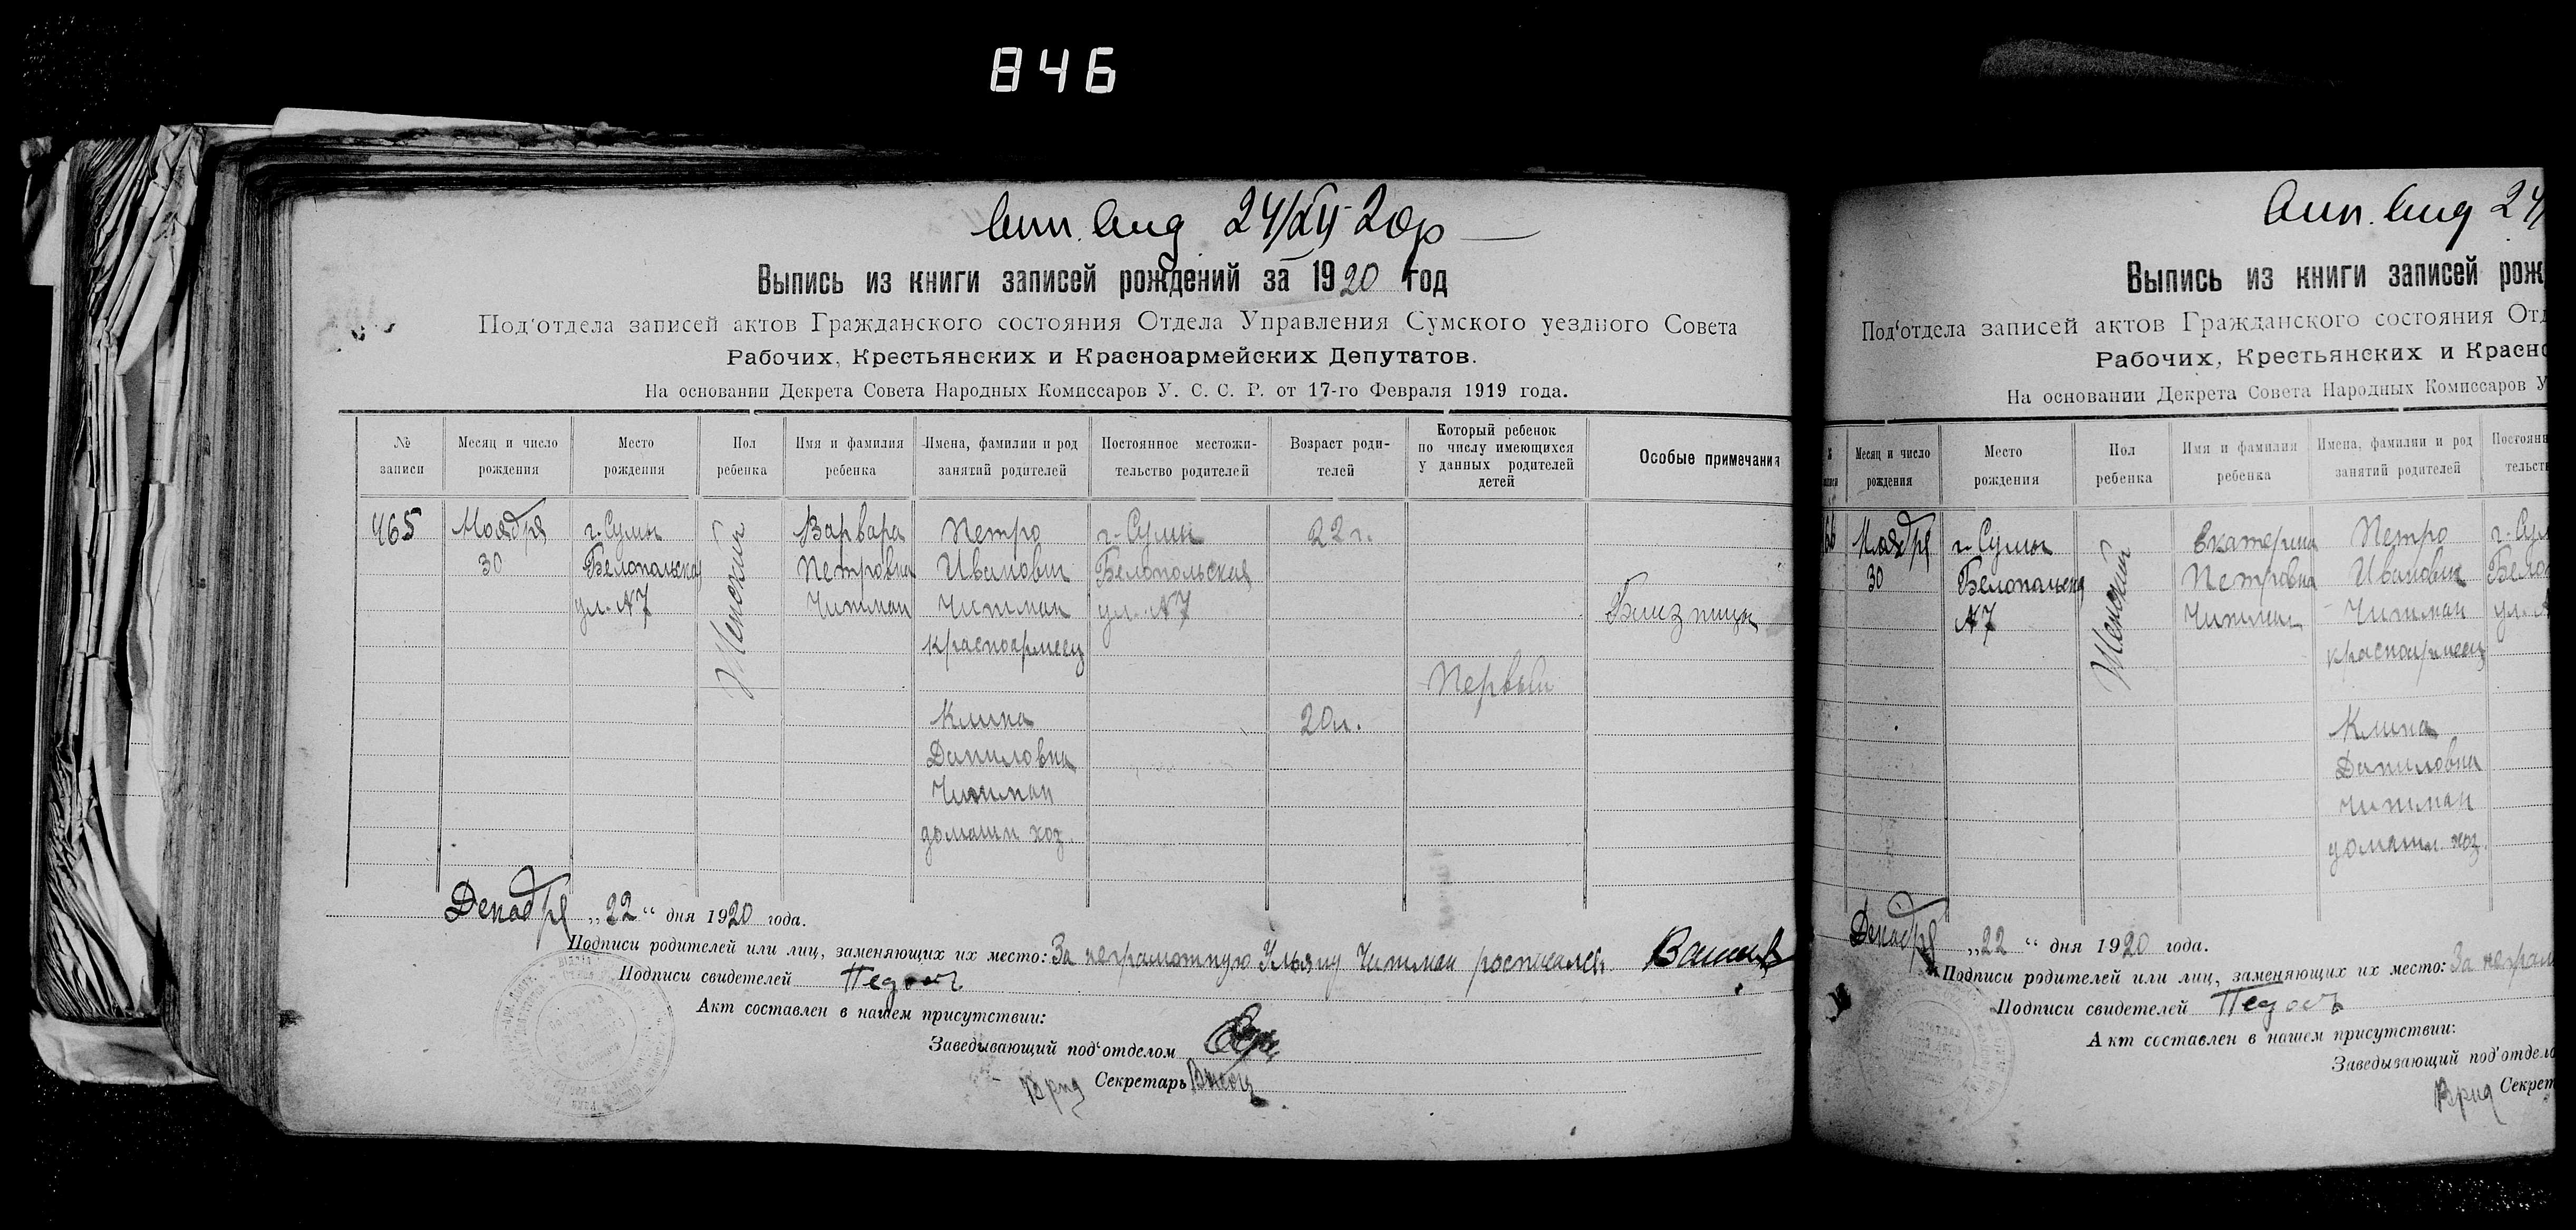 846
24/XII 20 р
Выпись из книги записей рождений за 1920 год
Под'отдела записей актов Гражданского состояния Отдела Управления Сумского уездного Совета
Рабочих, Крестьянских и Красноармейских Депутатов.
На основании Декрета Совета Народных Комиссаров У. С. С. Р. от 17-го Февраля 1919 года.
№ записи
Месяц и число рождения
Место рождения
Пол ребенка
Имя и фамилия ребенка
Имена, фамилии и род занятий родителей
Постоянное местожительство родителей
Возраст родителей
Который ребенок по числу имеющихся у данных родителей детей
Особые примечания
465
Ноября
30
г. Сумы
Белопольская
ул. №7
Женский
Варвара
Петровна
Чипман
Петро
Иванович
Чипман
красноармеец
Клина
Даниловна
Чипман
домашн хоз.
г. Сумы
Белопольская
ул. №7
22 г.
20 л.
Первый
Близнцы
Декабря „22“ дня 1920 года.
Подписи родителей или лиц, заменяющих их место: За неграмотную Ульяну Чипман росписался
Подписи свидетелей
Акт составлен в нашем присутствии:
Заведывающий под'отделом
Врид Секретарь
24/
Выпись из книги записей рож
Под'отдела записей актов Гражданского состояния Отд
Рабочих, Крестьянских и Красно
На основании Декрета Совета Народных Комиссаров У
Месяц и число рождения
Место рождения
Пол ребенка
Имя и фамилия ребенка
Имена, фамилии и род занятий родителей
Постоянн
тельст
Ноября
30
г. Сумы
Белопольская
№7
Женский
Екатерина
Петровна
Чипман
Петро
Иванович
Чипман
красноармеец
Клина
Даниловна
Чипман
домашн. хоз.
г. Сум
Белоп
ул. №
Декабря „22“ дня 1920 года.
Подписи родителей или лиц, заменяющих их место: За неграм
Подписи свидетелей
Акт составлен в нашем присутствии:
Заведывающий под'отдело
Врид Секрет